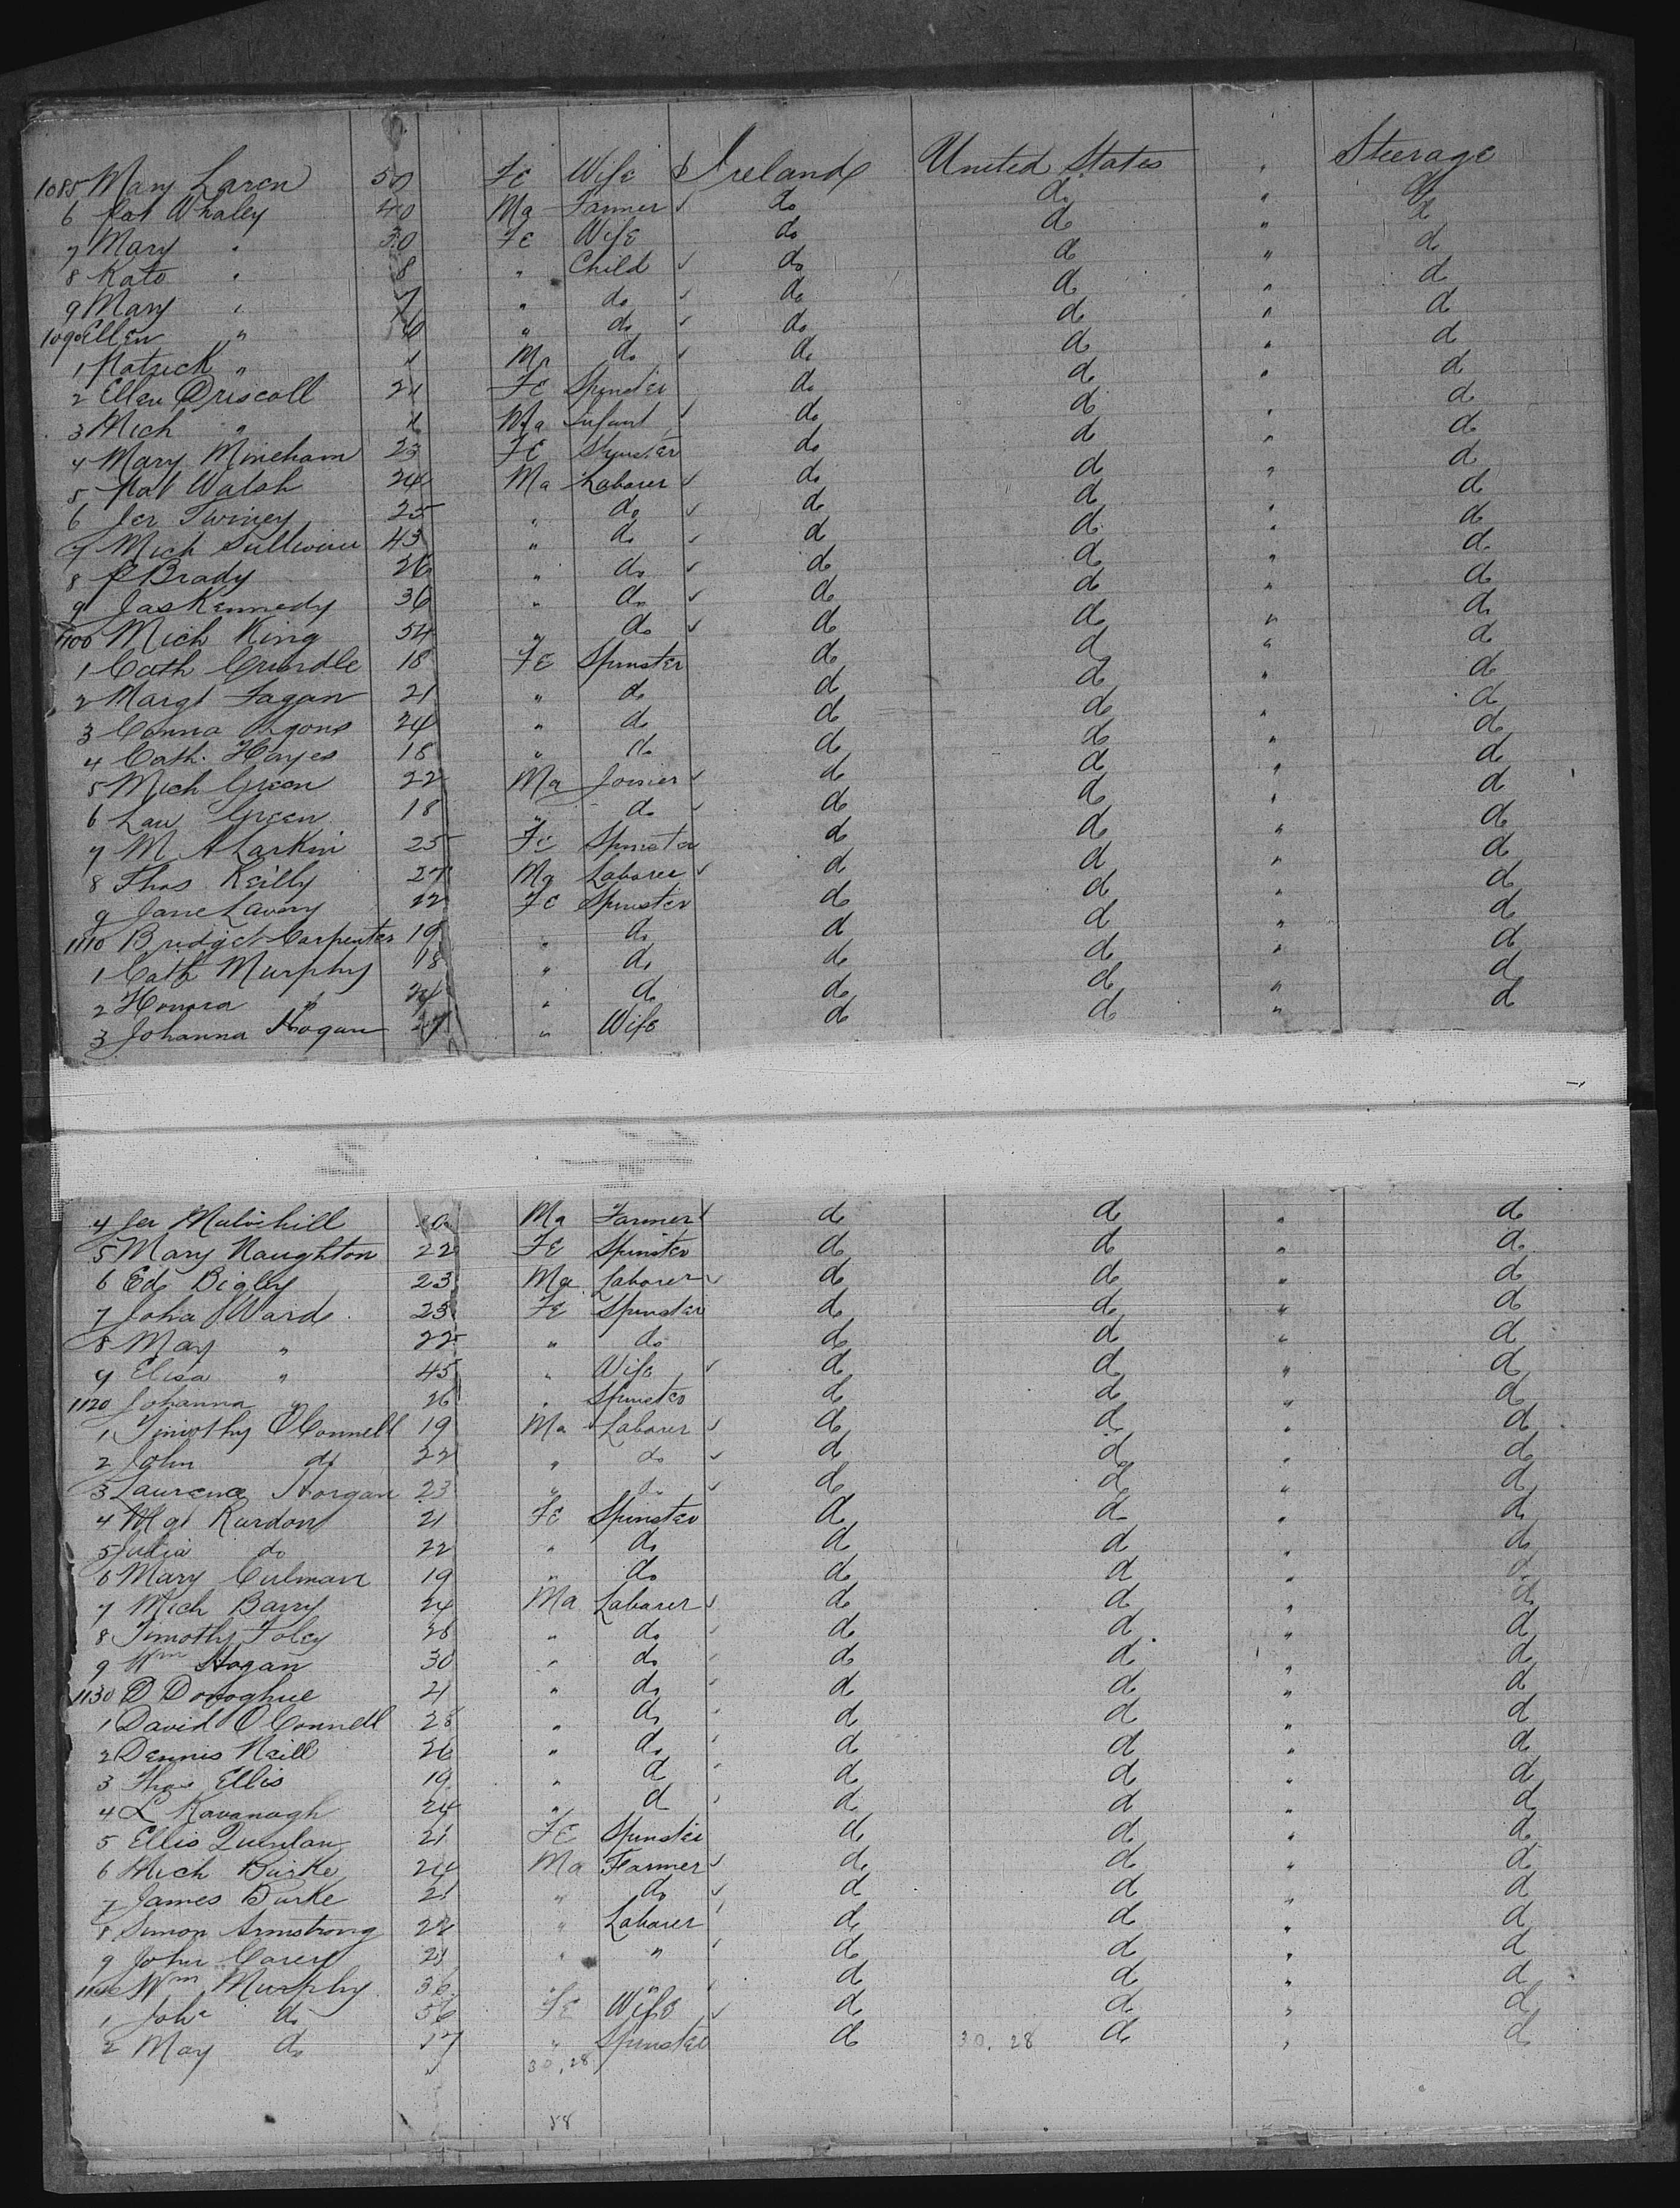 1085 Mary Laren 50 Fe Wife Ireland United States " Steerage
6 Pat Whaley 40 Ma Farmer ✓ do do " do
7 Mary " 30 Fe Wife do do " do
8 Kate " 8 " Child ✓ do do " do
9 Mary " 7 " do ✓ do do " do
1090 Ellen " " do ✓ do do " do
1 Patrick " Ma do ✓ do do " do
2 Ellen Driscoll 21 Fe Spinster do do " do
3 Mich " Ma Infant ✓ do do " do
4 Mary Mineham 23 Fe Spinster do do " do
5 Pat Walsh 24 Ma Laborer ✓ do do " do
6 Jer Twiney 25 " do ✓ do do " do
7 Mich Sullivan 43 " do ✓ do do " do
8 P Brady 26 " do ✓ do do " do
9 Jas Kennedy 36 " do ✓ do do " do
1100 Mich King 54 " do ✓ do do " do
1 Cath Crundle 18 Fe Spinster do do " do
2 Margt Fagan 21 " do do do " do
3 Conna Lyons 24 " do do do " do
4 Cath. Hayes 18 " do do do " do
5 Mich Green 22 Ma Joiner ✓ do do " do
6 Lau Green 18 " do ✓ do do " do
7 M A Larkin 25 Fe Spinster do do " do
8 Thos Reilly 27 Ma Laborer ✓ do do " do
9 Jane Lavery 22 Fe Spinster do do " do
1110 Bridget Carpenter 19 " do do do " do
1 Cath Murphy 18 " do do do " do
2 Honora " " do do do " do
3 Johanna Hogan 27 " Wife do do " do
4 Jer Mulvihill Ma Farmer ✓ do do " do
5 Mary Naughton 22 Fe Spinster do do " do
6 Ed Bigley 23 Ma Laborer ✓ do do " do
7 Joha Ward 23 Fe Spinster do do " do
8 May " 22 " do do do " do
9 Elisa " 45 " Wife ✓ do do " do
1120 Johanna " 26 " Spinster do do " do
1 Timothy O'Connell 19 Ma Laborer ✓ do do " do
2 John do 22 " do ✓ do do " do
3 Laurence Horgan 23 " do ✓ do do " do
4 Mgt Rardon 21 Fe Spinster do do " do
5 Julia do 22 " do do do " do
6 Mary Culman 19 " do do do " do
7 Mich Barry 24 Ma Laborer ✓ do do " do
8 Timothy Foley 28 " do do do " do
9 Wm Hogan 30 " do do do " do
1130 D Donoghue 21 " do do do " do
1 David O'Connell 28 " do do do " do
2 Dennis Neill 26 " do do do " do
3 Thos Ellis 19 " do do do " do
4 L Kavanagh 24 " do do do " do
5 Ellis Quinlan 21 Fe Spinster do do " do
6 Mich Burke 24 Ma Farmer ✓ do do " do
7 James Burke 21 " do ✓ do do " do
8 Simon Armstrong 22 " Laborer do do " do
9 John Carey 21 " " do do " do
1140 Wm Murphy 36 " do do " do
1 Joha do 56 Fe Wife ✓ do do " do
2 May do 17 " Spinster do 30.28 do " do
30.28
58